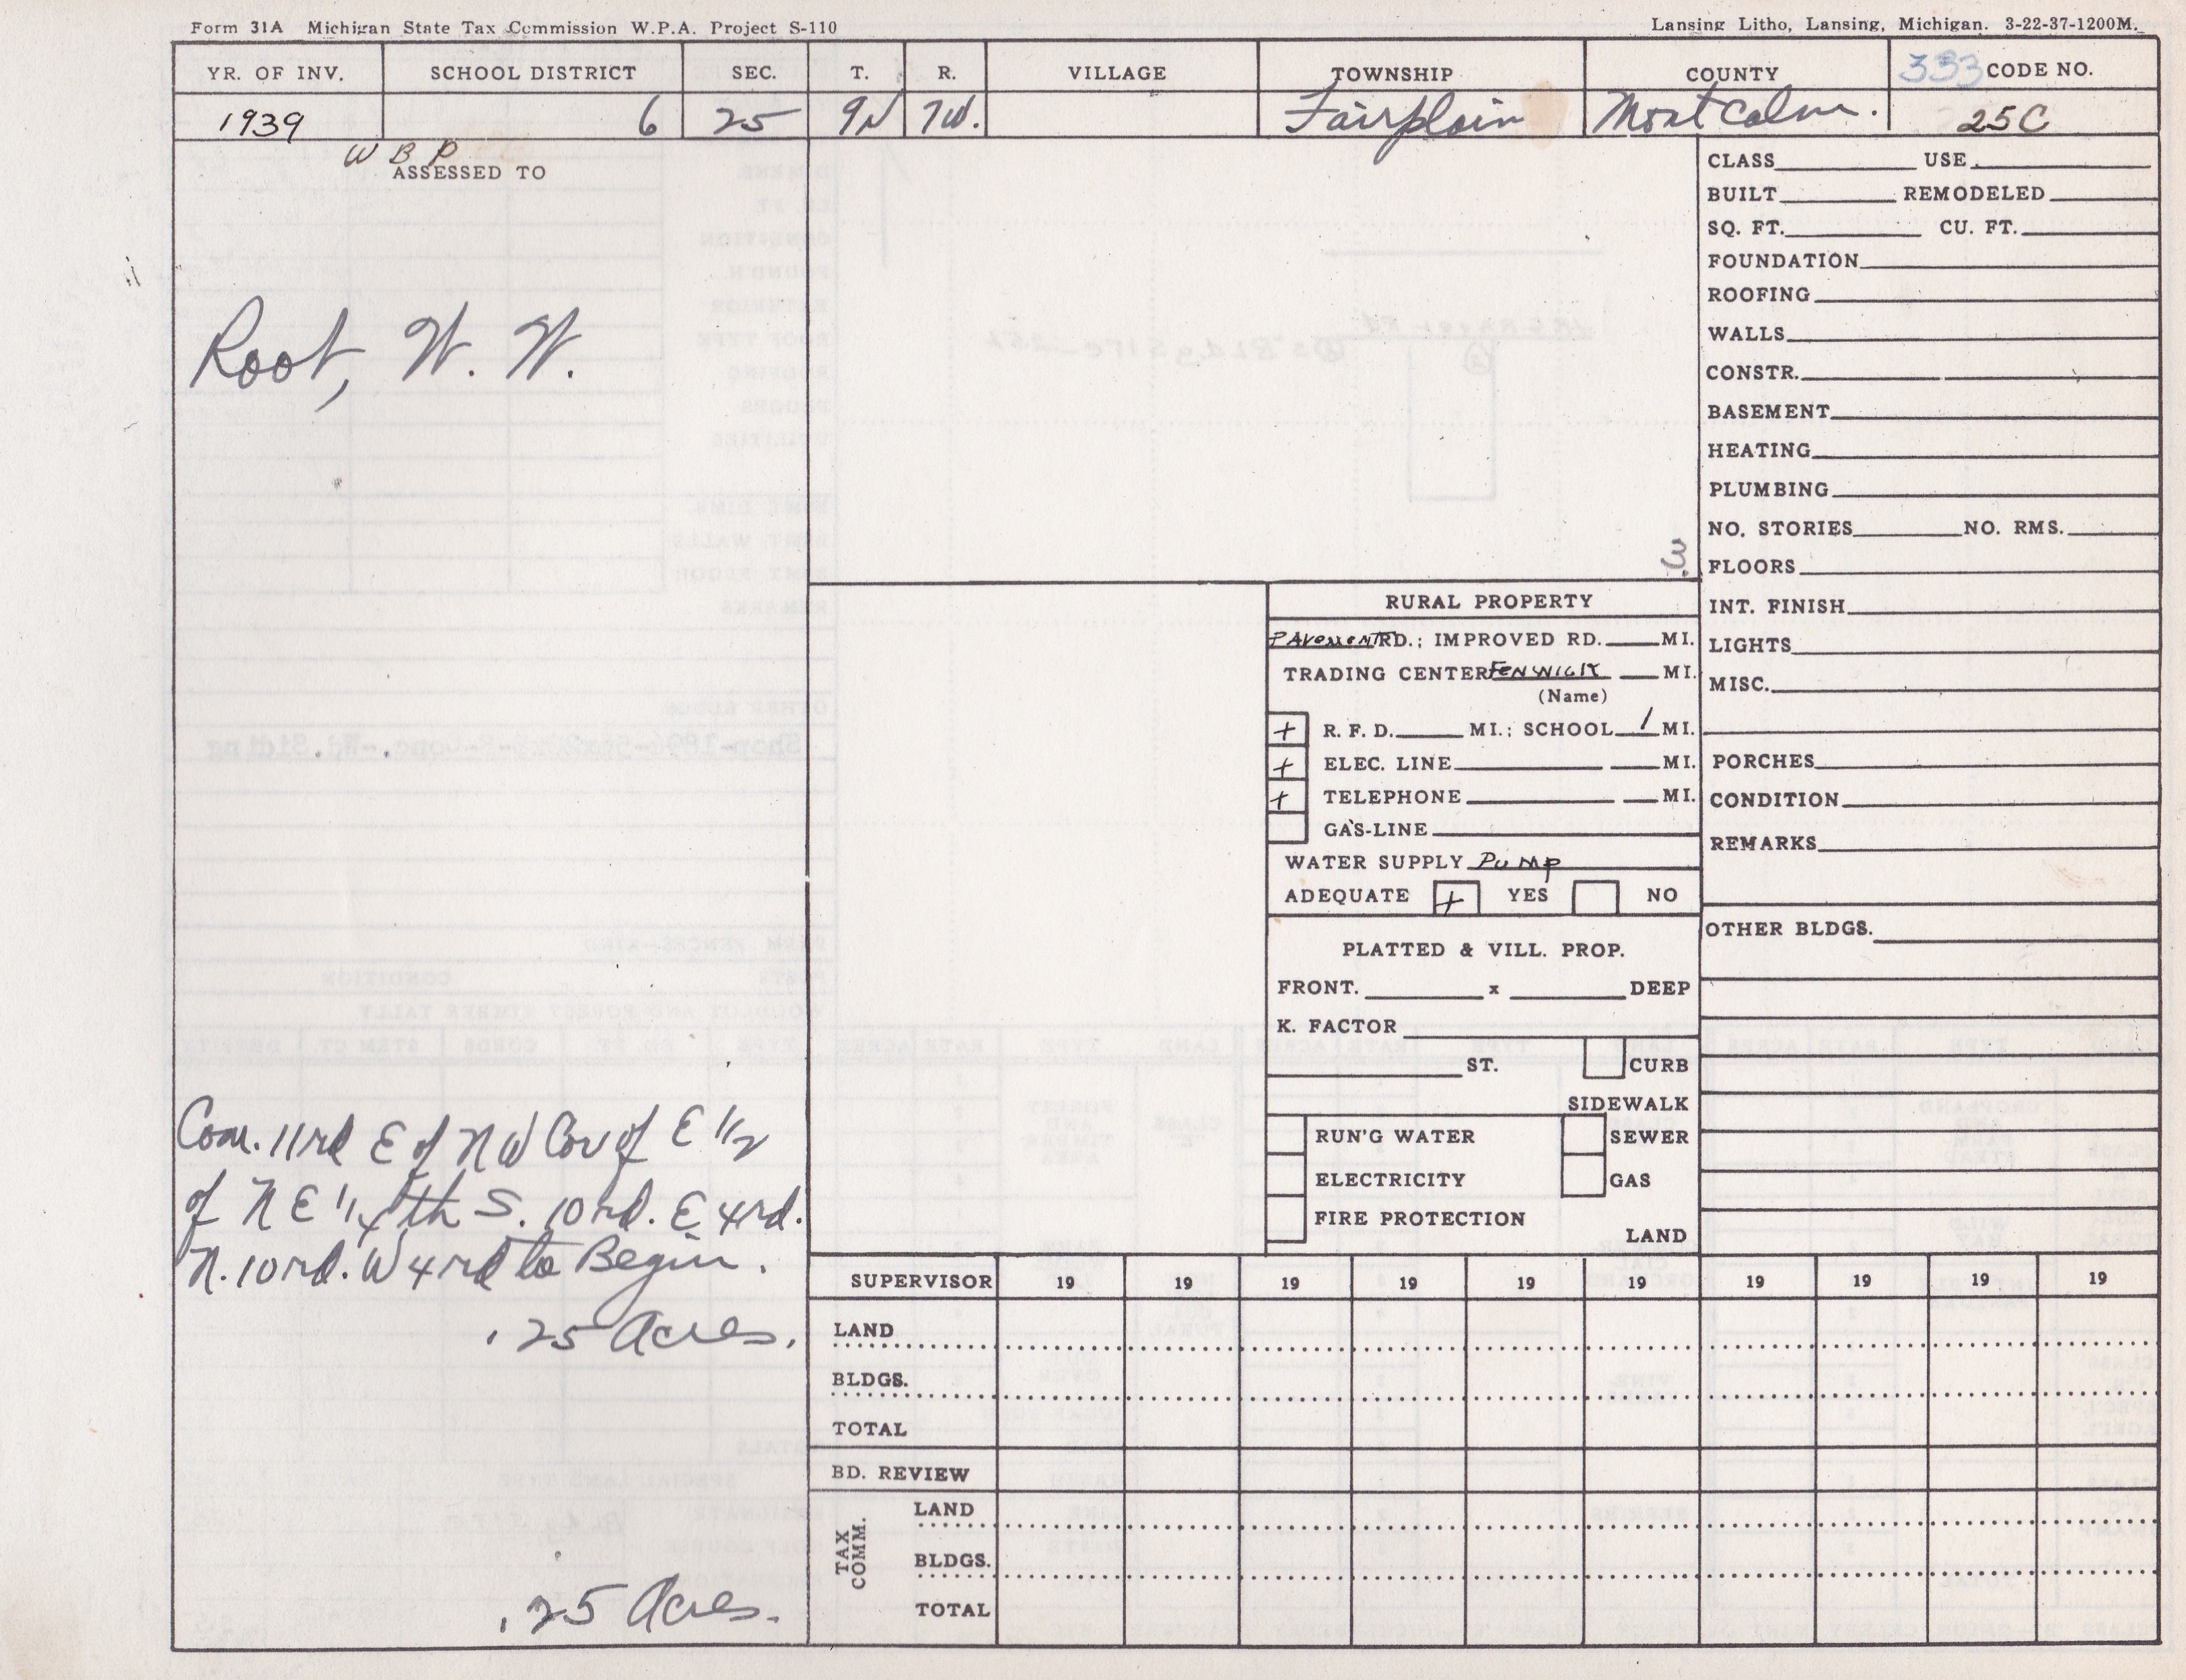 Form 31A Michigan State Tax Commission W.P.A. Project S-110
Lansing Litho, Lansing, Michigan. 3-22-37-1200M.
YR. OF INV. SCHOOL DISTRICT SEC. T. R. VILLAGE TOWNSHIP COUNTY 333 CODE NO.
1939 6 25 9N 7W. Fairplain Montcalm. 25C
W B P
ASSESSED TO
Root, W. W.
Com. 11rd E of NW Cor of E 1/2
of NE 1/4 th S. 10rd. E 4rd.
N. 10rd. W 4rd to Begin.
.25 Acres.
.25 Acres.
3
RURAL PROPERTY
PAVEMENT RD.; IMPROVED RD. MI.
TRADING CENTER FENWICK MI.
(Name)
+ R. F. D. MI.; SCHOOL 1 MI.
+ ELEC. LINE MI.
+ TELEPHONE MI.
GAS-LINE
WATER SUPPLY PUMP
ADEQUATE + YES NO
PLATTED & VILL. PROP.
FRONT. x DEEP
K. FACTOR
ST. CURB
SIDEWALK
RUN'G WATER SEWER
ELECTRICITY GAS
FIRE PROTECTION
LAND
CLASS USE
BUILT REMODELED
SQ. FT. CU. FT.
FOUNDATION
ROOFING
WALLS
CONSTR.
BASEMENT
HEATING
PLUMBING
NO. STORIES NO. RMS.
FLOORS
INT. FINISH
LIGHTS
MISC.
PORCHES
CONDITION
REMARKS
OTHER BLDGS.
SUPERVISOR 19 19 19 19 19 19 19 19 19 19
LAND
BLDGS.
TOTAL
BD. REVIEW
TAX COMM.
LAND
BLDGS.
TOTAL